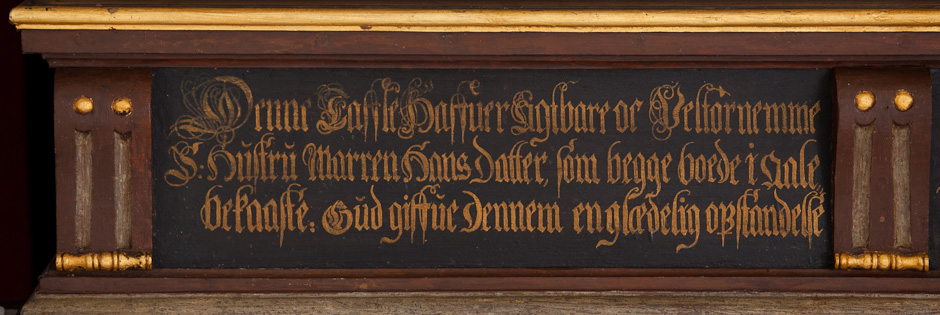 Denne Taffle Haffuer Agtbare oc Velfornemme
S. Hustru Marren Hans Datter, som begge boede i Aale
bekaaste: Gud giffue Dennem en glædelig opstandelse